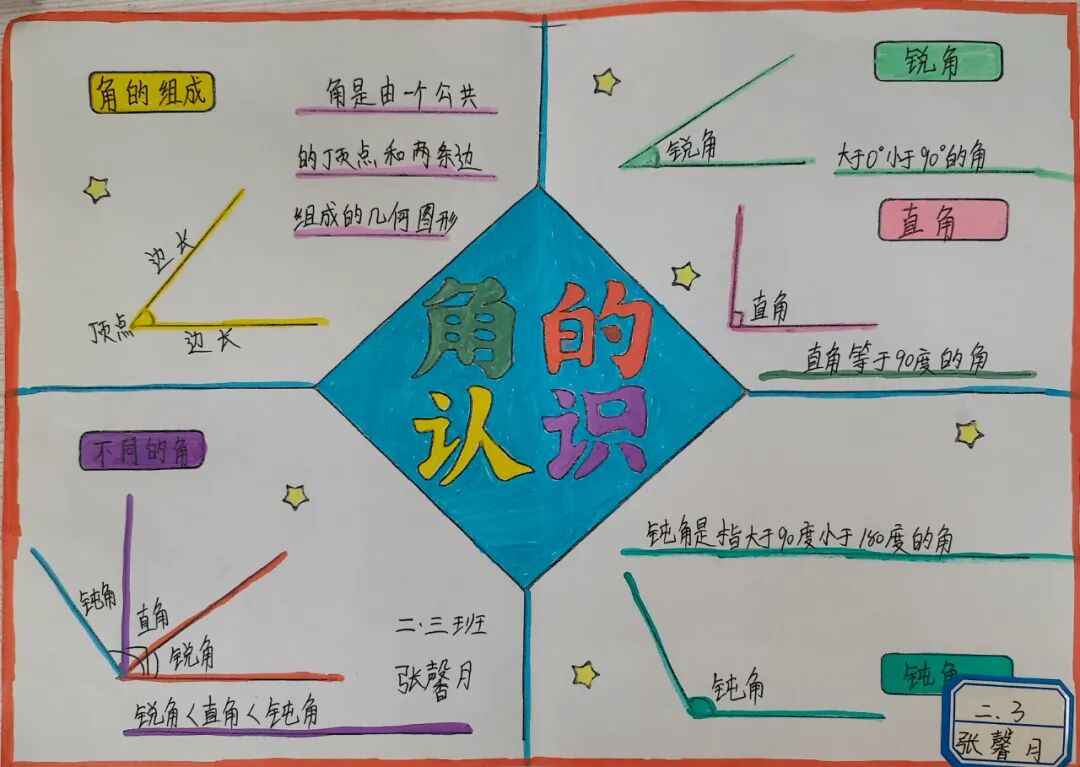 角的组成
角是由一个公共
的顶点和两条边
组成的几何图形
边长
顶点
边长
锐角
锐角
大于0°小于90°的角
直角
直角
直角等于90度的角
角的
认识
不同的角
钝角
直角
锐角
锐角<直角<钝角
二.三班
张馨月
钝角是指大于90度小于180度的角
钝角
钝角
二.3
张馨月